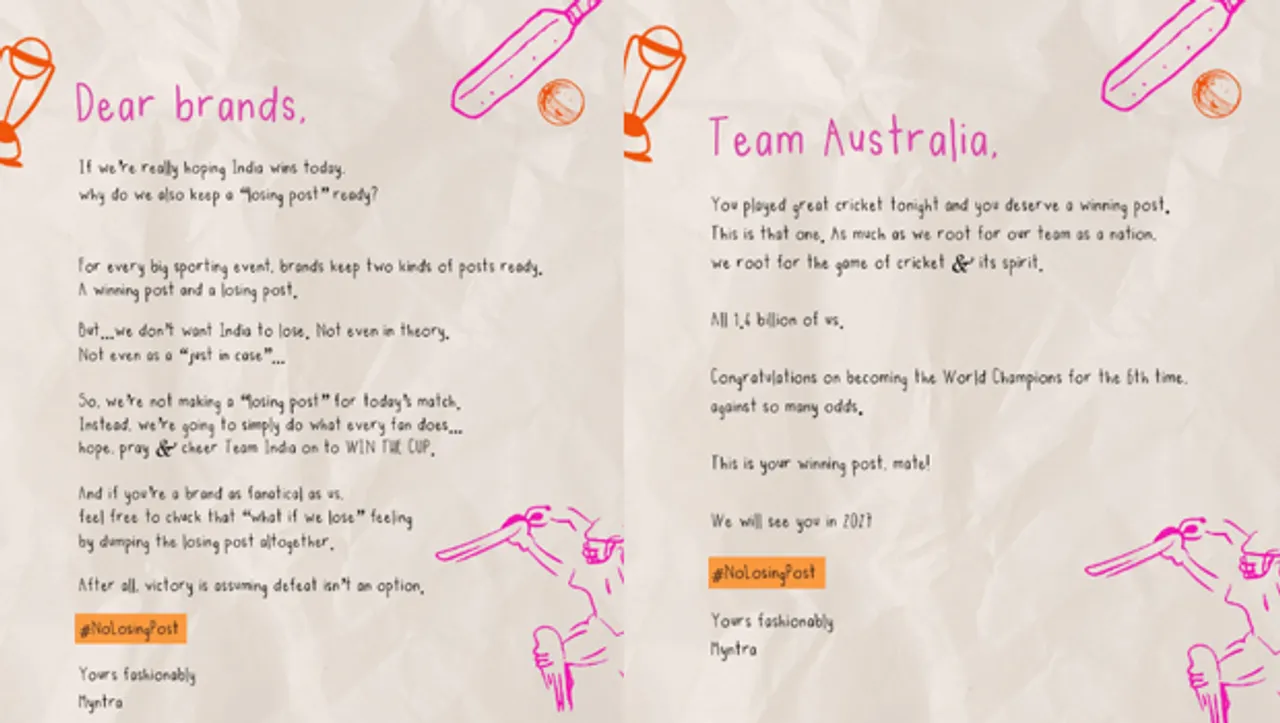 Dear brands,
If we're really hoping India wins today,
why do we also keep a "losing post" ready?
For every big sporting event, brands keep two kinds of posts ready.
A winning post and a losing post.
But...we don't want India to lose. Not even in theory.
Not even as a "just in case"...
So, we're not making a "losing post" for today's match.
Instead, we're going to simply do what every fan does...
hope, pray & cheer Team India on to WIN THE CUP.
And if you're a brand as fanatical as us,
feel free to chuck that "what if we lose" feeling
by dumping the losing post altogether.
After all, victory is assuming defeat isn't an option.
#NoLosingPost
Yours fashionably
Myntra
Team Australia,
You played great cricket tonight and you deserve a winning post.
This is that one. As much as we root for our team as a nation,
we root for the game of cricket & its spirit.
All 1.4 billion of us.
Congratulations on becoming the World Champions for the 6th time,
against so many odds.
This is your winning post, mate!
We will see you in 2027
#NoLosingPost
Yours fashionably
Myntra